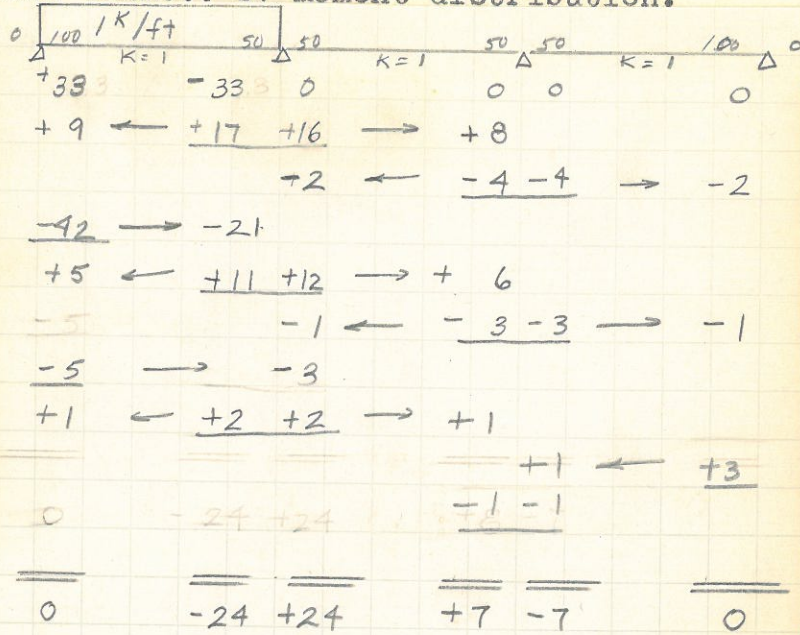 moment distribution.
0 100 1 K/ft 50 50 50 50 100 0
K=1 K=1 K=1
+33 -33 0 0 0 0
+9 ← +17 +16 → +8
-2 ← -4 -4 → -2
-42 → -21
+5 ← +11 +12 → + 6
-5 -1 ← - 3 -3 → -1
-5 → -3
+1 ← +2 +2 → +1
+1 ← +3
-1 -1
0 -24 +24
0 -24 +24 +7 -7 0